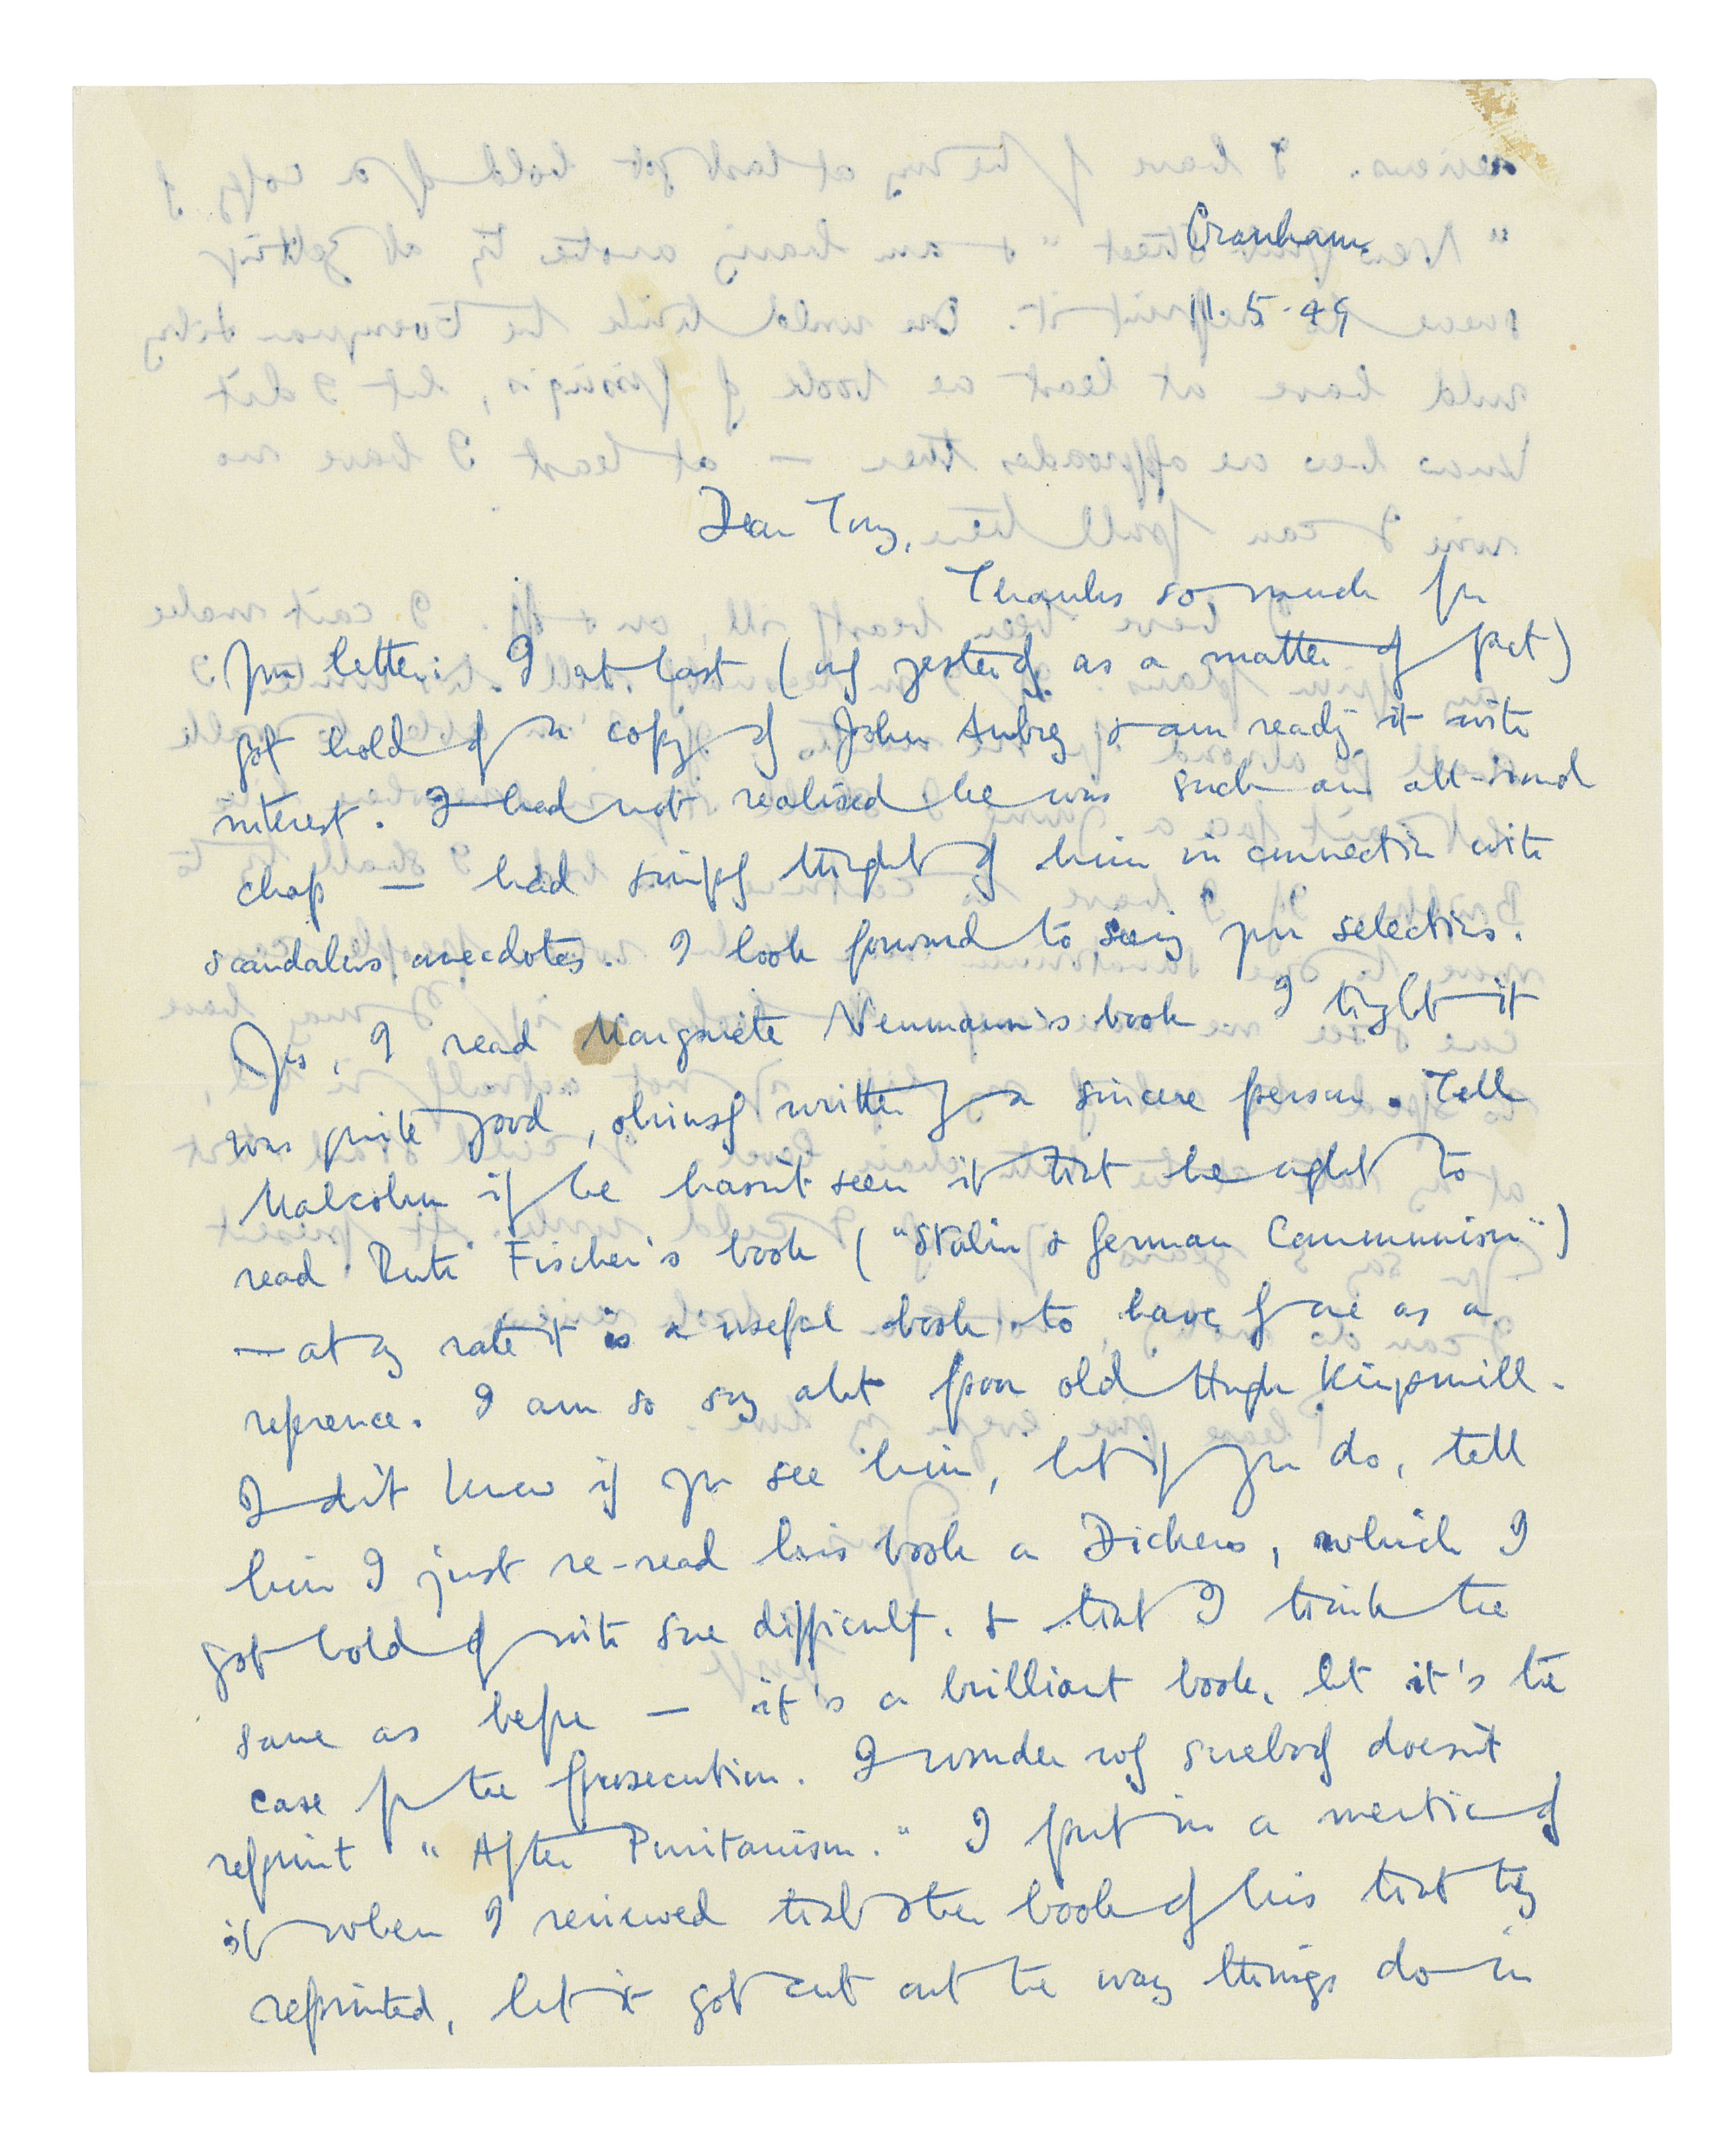 Cranham.
11.5.49
Dear Tony,
Thanks so much for
your letter. I at last (only yesterday as a matter of fact)
got hold of a copy of John Aubrey & am reading it with
interest. I had not realised he was such an all-round
chap — had simply thought of him in connection with
scandalous anecdotes. I look forward to seeing your selections.
Yes, I read Margarete Neumann's book I thought it
was quite good, obviously written by a sincere person. Tell
Malcolm if he hasn't seen it that he ought to
read Ruth Fischer's book ("Stalin & German Communism")
— at any rate it is a useful book to have by one as a
reference. I am so sorry about poor old Hugh Kingsmill.
I don't know if you see him, but if you do, tell
him I just re-read his book on Dickens, which I
got hold of with some difficulty, & that I think the
same as before — it's a brilliant book, but it's the
case for the prosecution. I wonder why somebody doesn't
reprint "After Puritanism." I put in a mention of
it when I reviewed that other book of his that they
reprinted, but it got cut out the way things do in